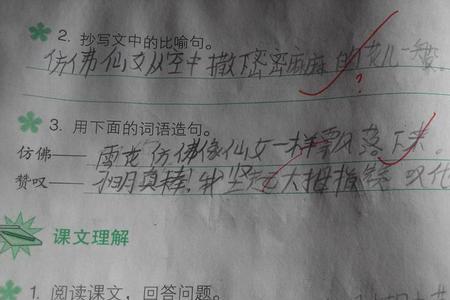 2. 抄写文中的比喻句。
仿佛仙女从空中撒下密密麻麻的花儿一
?
3. 用下面的词语造句。
仿佛—— 雪花仿佛像仙女一样飘落下来。
赞叹—— 明真棒!我竖起大拇指 叹化
课文理解
1. 阅读课文,回答问题。